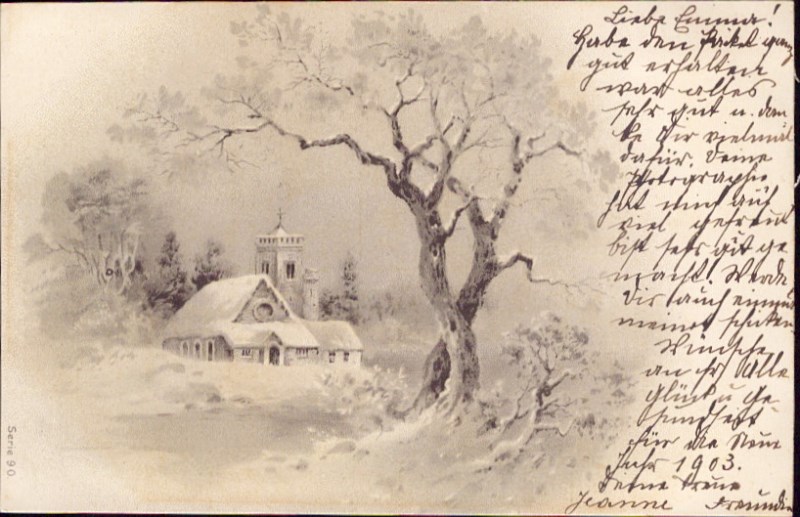 Liebe Emma!
Habe den Paket ganz
gut erhalten
war alles
sehr gut u. dan
ke Dir vielmal
dafür. Deine
Photographie
hat mich auch
viel gefreut
bist sehr gut ge
macht. Werde
Dir auch einmal
meine schicken
Wünsche
an Alle
Glück u. Ge
sundheit
für die Neue
Jahr 1903.
Deine treue
Jeanne Freundin
Serie 90